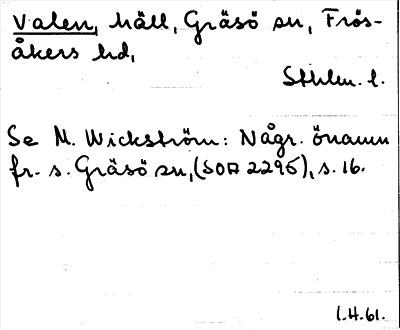 Valen, häll, Gräsö sn, Frös-
åkers hd,
Sthlm. l.
Se M. Wickström: Någr. önamn
fr. s. Gräsö sn, (SOA 2295), s. 16.
I.H. 61.